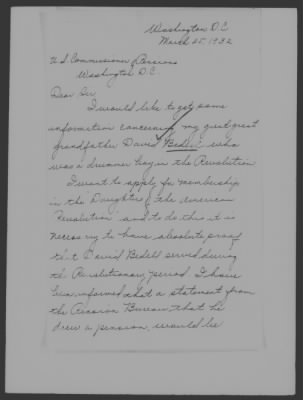 Washington D.C.
March 25, 1932
U.S. Commissioner Pensions
Washington D.C.
Dear Sir
I would like to get some
information concerning my great great
grandfather David Bedell who
was a drummer boy in the Revolution
I want to apply for membership
in the Daughters of the American
Revolution and to do this it is
necessary to have absolute proof
that David Bedell served during
the Revolutionary period. I have
been informed that a statement from
the Pension Bureau that he
drew a pension, would be